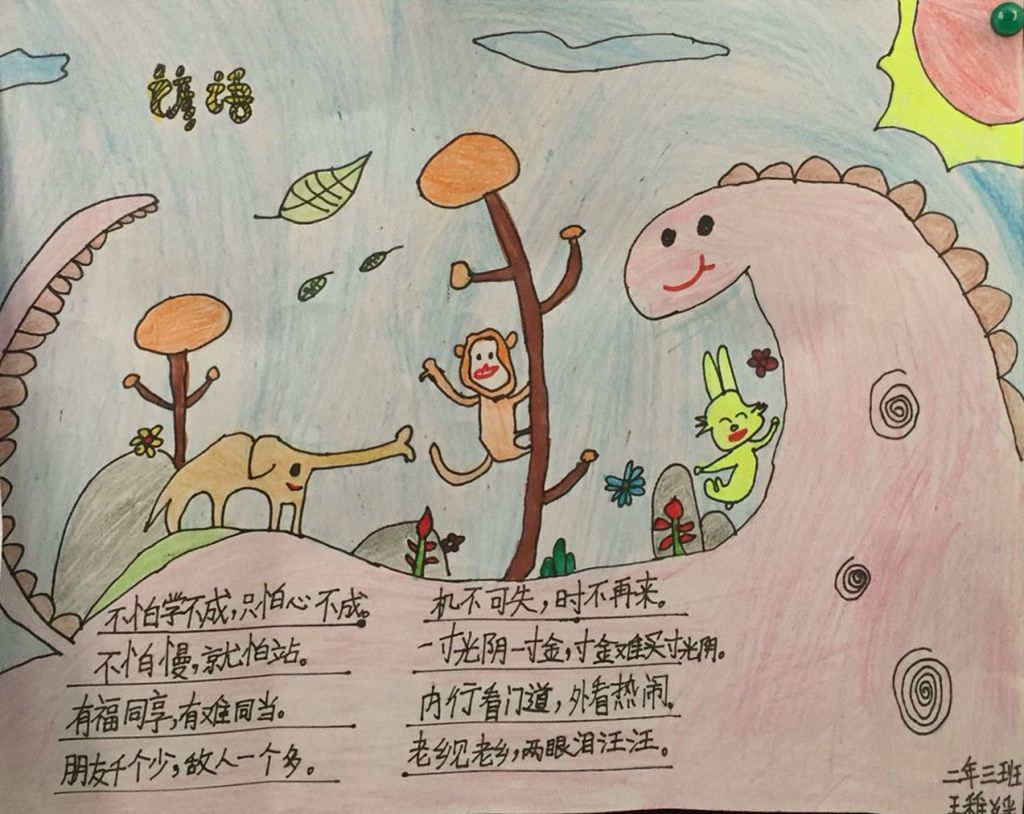 谚语
不怕学不成,只怕心不成。
不怕慢,就怕站。
有福同享,有难同当。
朋友千个少,敌人一个多。
机不可失,时不再来。
一寸光阴一寸金,寸金难买寸光阴。
内行看门道,外看热闹。
老乡见老乡,两眼泪汪汪。
二年三班
王